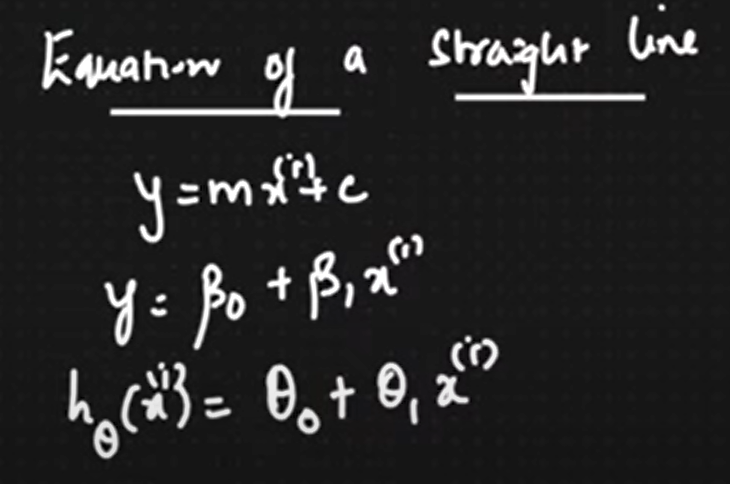 Equation of a straight line
y = mx⁽ⁱ⁾ + c
y = β₀ + β₁x⁽ⁱ⁾
h_θ(x⁽ⁱ⁾) = θ₀ + θ₁x⁽ⁱ⁾